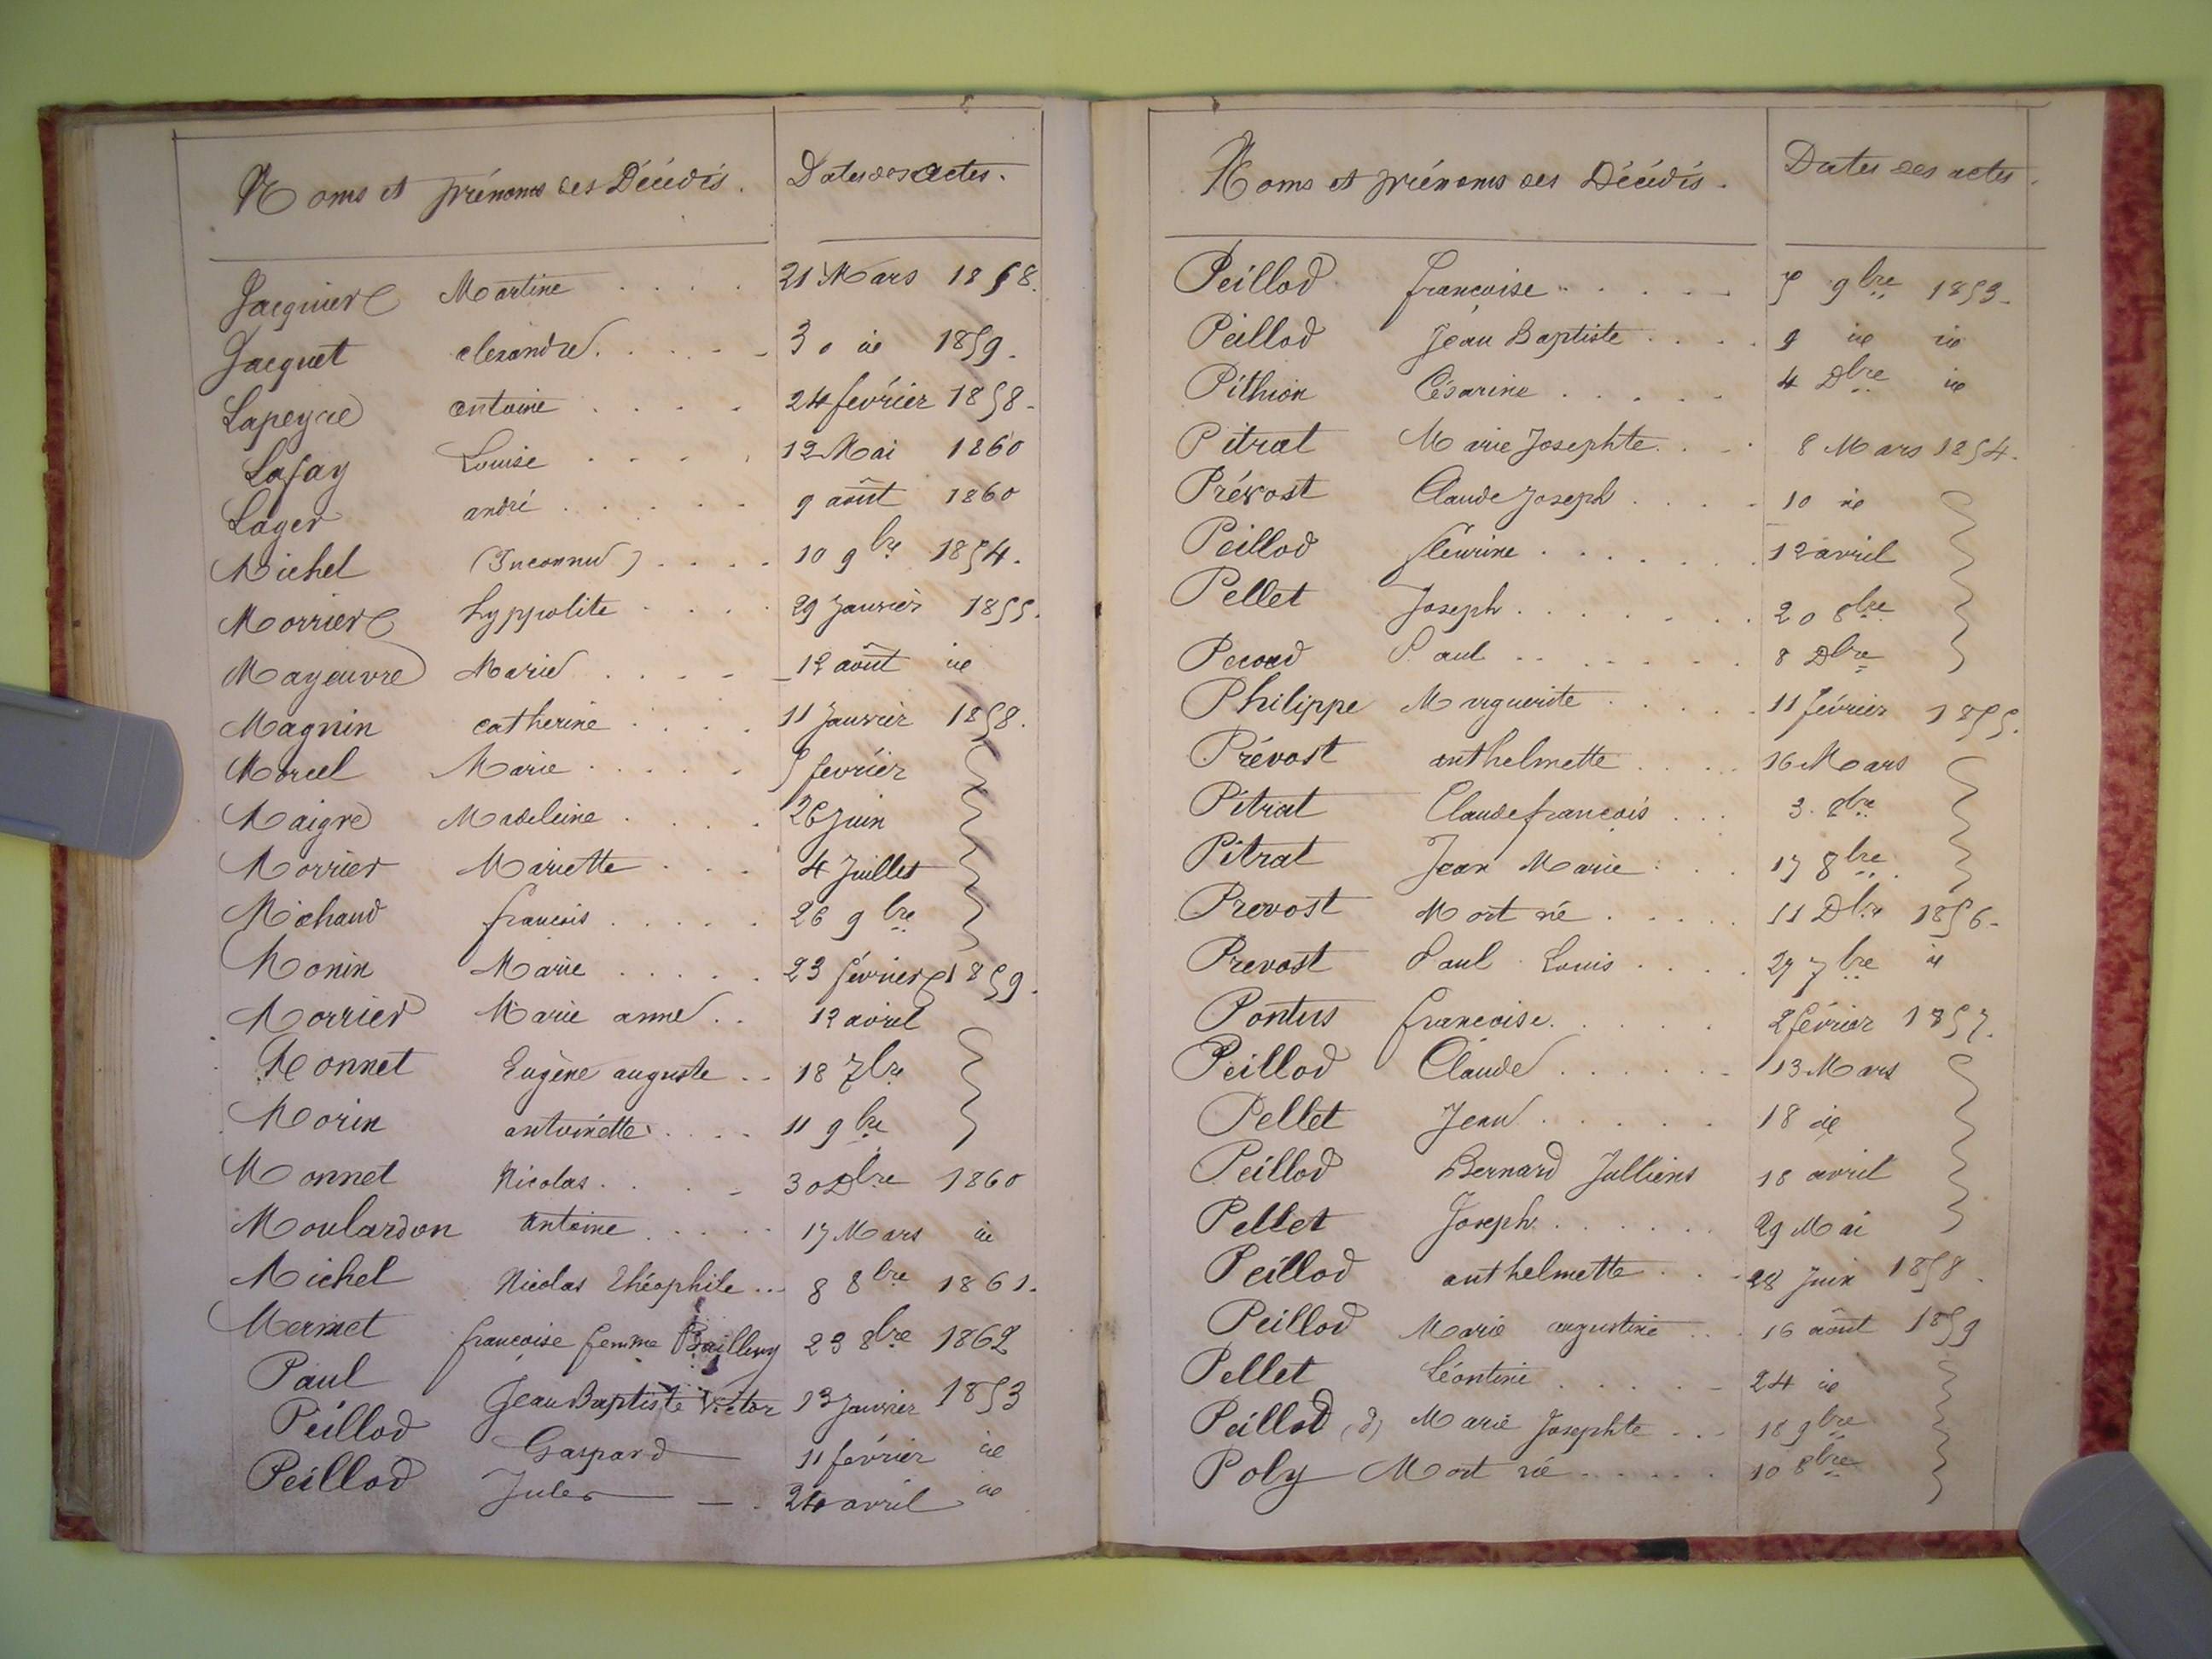 Noms et prénoms des Décédés. Dates des actes.
Jacquier Martine . . . . 21 Mars 1858.
Jacquet alexandre. . . . . 30 id 1859.
Lapeyre antoine . . . . 24 février 1858.
Lafay Louise . . . . 12 Mai 1860
Lager andré . . . . . 9 août 1860
Michel (Inconnu) . . . . 10 9bre 1854.
Morrier hyppolite . . . . 29 Janvier 1855.
Mayeuvre Marie . . . . 12 août id
Magnin catherine . . . . 11 Janvier 1858.
Morel Marie . . . . . 5 février
Maigre Madeleine . . . . 26 Juin
Morrier Mariette . . . 4 Juillet
Michaud francois . . . . . 26 9bre
Monin Marie . . . . . 23 février 1859.
Morrier Marie anne . . 12 avril
Monnet Eugène auguste . . 18 7bre
Morin antoinette . . . . 11 9bre
Monnet Nicolas . . . . 30 Dbre 1860
Moulardon antoine . . . . . 17 Mars id
Michel Nicolas théophile ... 8 8bre 1861.
Mermet françoise femme 23 8bre 1862
Paul Jean Baptiste Victor 13 Janvier 1853
Peillod Gaspard 11 février id
Peillod Jules 24 avril id
Noms et prénoms des Décédés. Dates des actes.
Peillod francoise . . . . . 5 9bre 1853.
Peillod Jean Baptiste . . . . 9 id id
Pithion Césarine . . . . . 4 Dbre id
Pitrat Marie Josephte . . . 8 Mars 1854.
Prévost Claude Joseph . . . . 10 id
Peillod fleurine . . . . . . 12 avril
Pellet Joseph . . . . . . . 20 8bre
Paul . . . . . . . 8 Dbre
Philippe Marguerite . . . . . 11 février 1855.
Prévost anthelmette . . . . 16 Mars
Pitrat Claude francois . . . 3. 8bre
Pitrat Jean Marie . . . 17 8bre.
Prevost Mort né . . . . . 11 Dbre 1856.
Prevost Paul Louis . . . . 27 7bre id
Pontus francoise. . . . . . 2 février 1857.
Peillod Claude . . . . . . 13 Mars
Pellet Jean . . . . . . 18 id
Peillod Bernard Julliens 18 avril
Pellet Joseph . . . . . . 29 Mai
Peillod anthelmette . . . 28 Juin 1858.
Peillod Marie augustine . . . 16 août 1859
Pellet Léontine . . . . . 24 id
Peillod (d) Marie Josephte . . . 18 9bre
Poly Mort né . . . . . 10 8bre